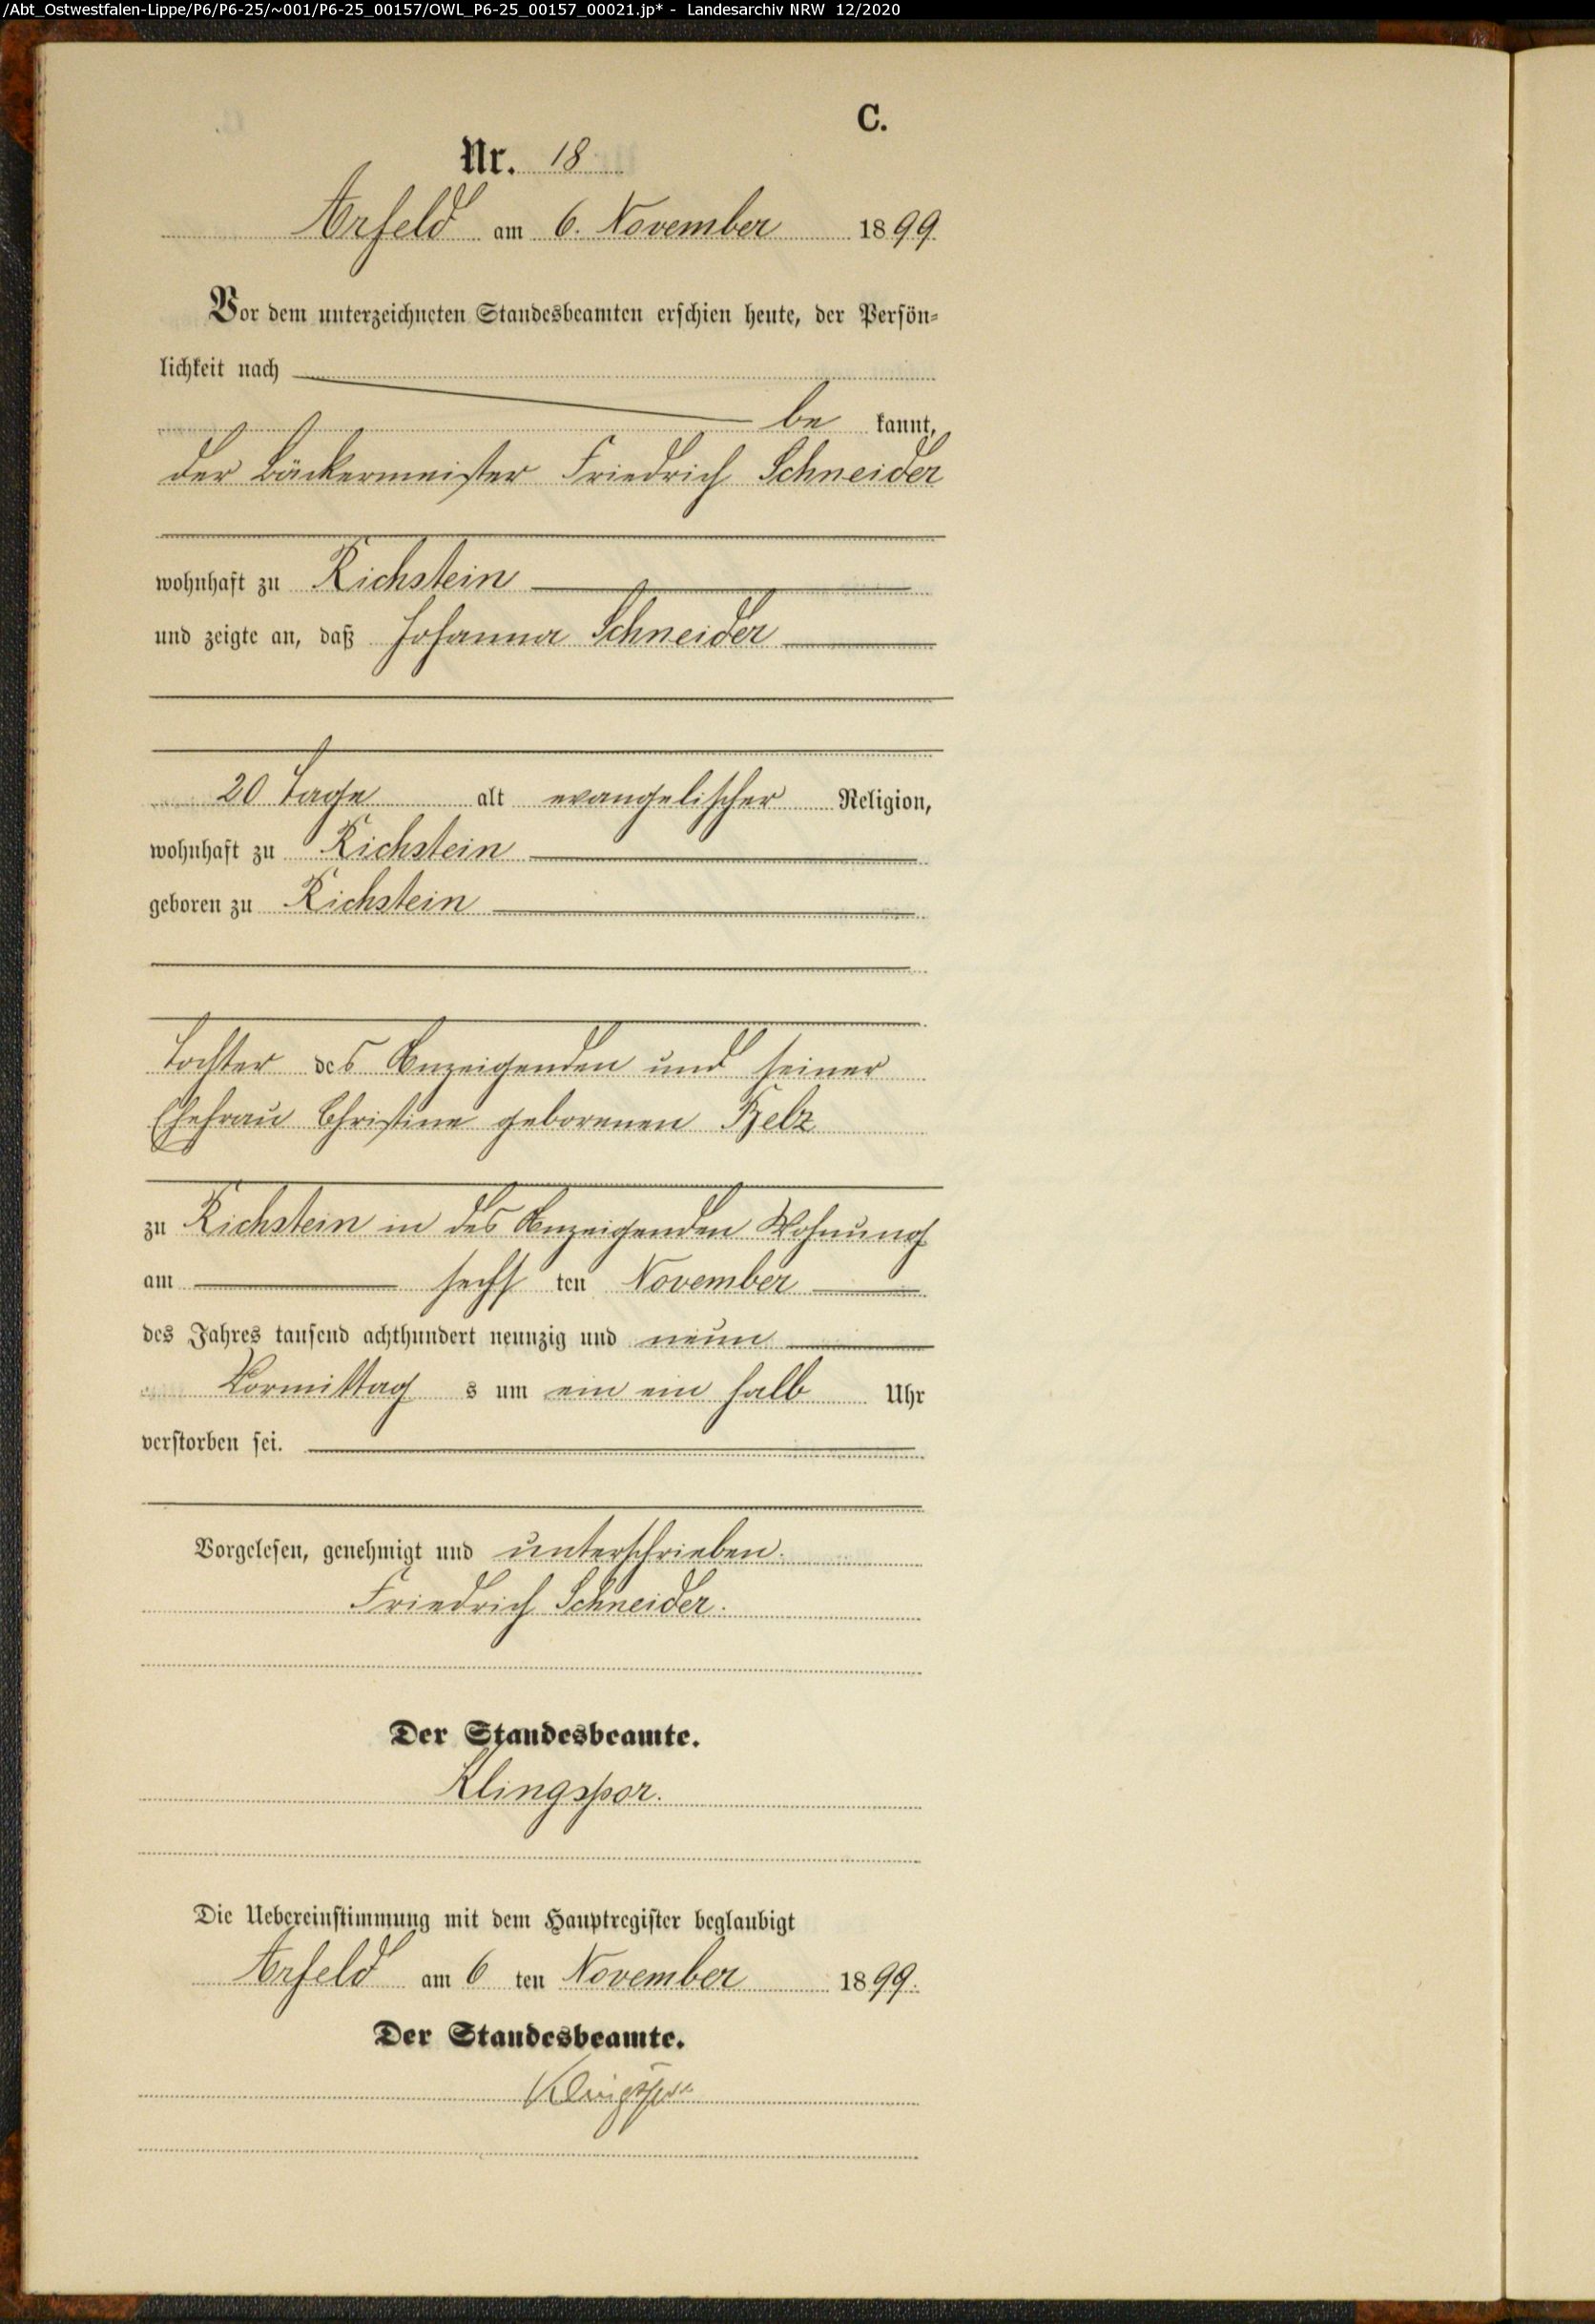 /Abt_Ostwestfalen-Lippe/P6/P6-25/~001/P6-25_00157/OWL_P6-25_00157_00021.jp* - Landesarchiv NRW 12/2020
C.
Nr. 18
Arfeld am 6. November 1899.
Vor dem unterzeichneten Standesbeamten erschien heute, der Persön-
lichkeit nach
be kannt,
der Bäckermeister Friedrich Schneider
wohnhaft zu Richstein
und zeigte an, daß Johanna Schneider
20 Tage alt evangelischer Religion,
wohnhaft zu Richstein
geboren zu Richstein
Tochter des Anzeigenden und seiner
Ehefrau Christine geborenen
zu Richstein in des Anzeigenden Wohnung
am sechs ten November
des Jahres tausend achthundert neunzig und neun
Vormittag s um ein ein halb Uhr
verstorben sei.
Vorgelesen, genehmigt und unterschrieben.
Friedrich Schneider.
Der Standesbeamte.
Klingspor.
Die Uebereinstimmung mit dem Hauptregister beglaubigt
Arfeld am 6 ten November 1899.
Der Standesbeamte.
Klingspor